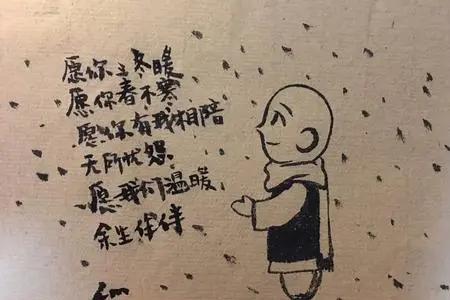 愿你三冬暖
愿你春不寒
愿你有我相陪
无所忧怨
愿我们温暖
余生作伴